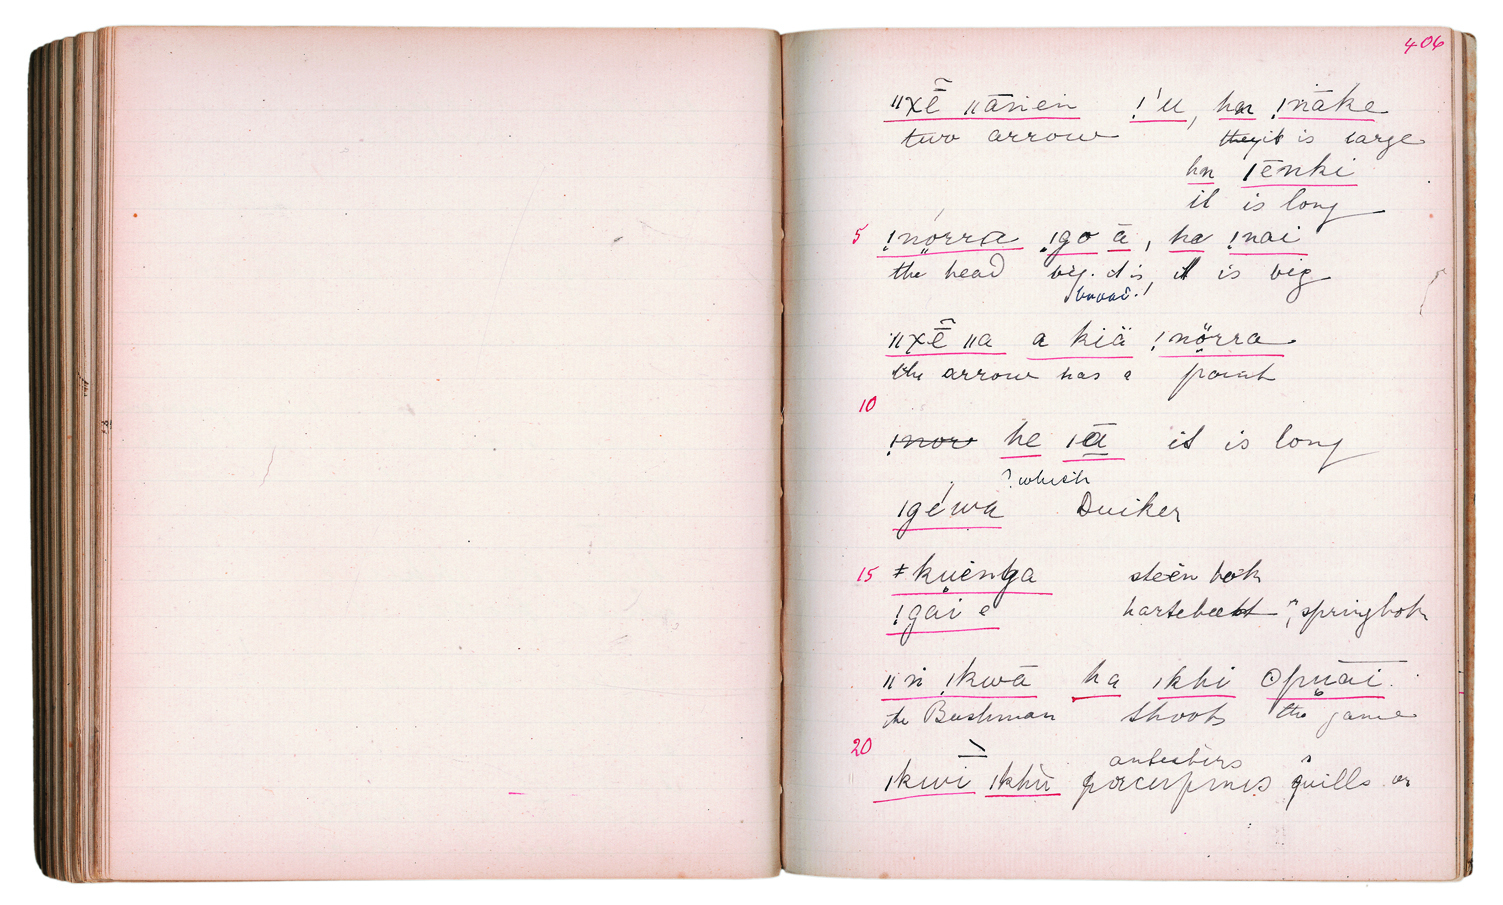 406
ǁχẽ̄ ǁānein ǃ'u, han ǃnāke
two arrow they it is large
hn ǀēnki
it is long
5 ǃnórra ǃgo ā, he ǃnai
the head big. it is, it is big
broad!
ǁχẽ̄ ǁa a kiä ǃnörra
the arrow has a point
10
ǃnor he ǀā it is long
? which
ǀgéwa Duiker
15 ǂkuènga steenbok
ǃgai e hartebeest ? springbok
ǁn ǃkwā ha ǀkhi ʘpuāi.
the Bushman shoots the game
20
antbears
ǀkwi ǀkhù porcupines quills or